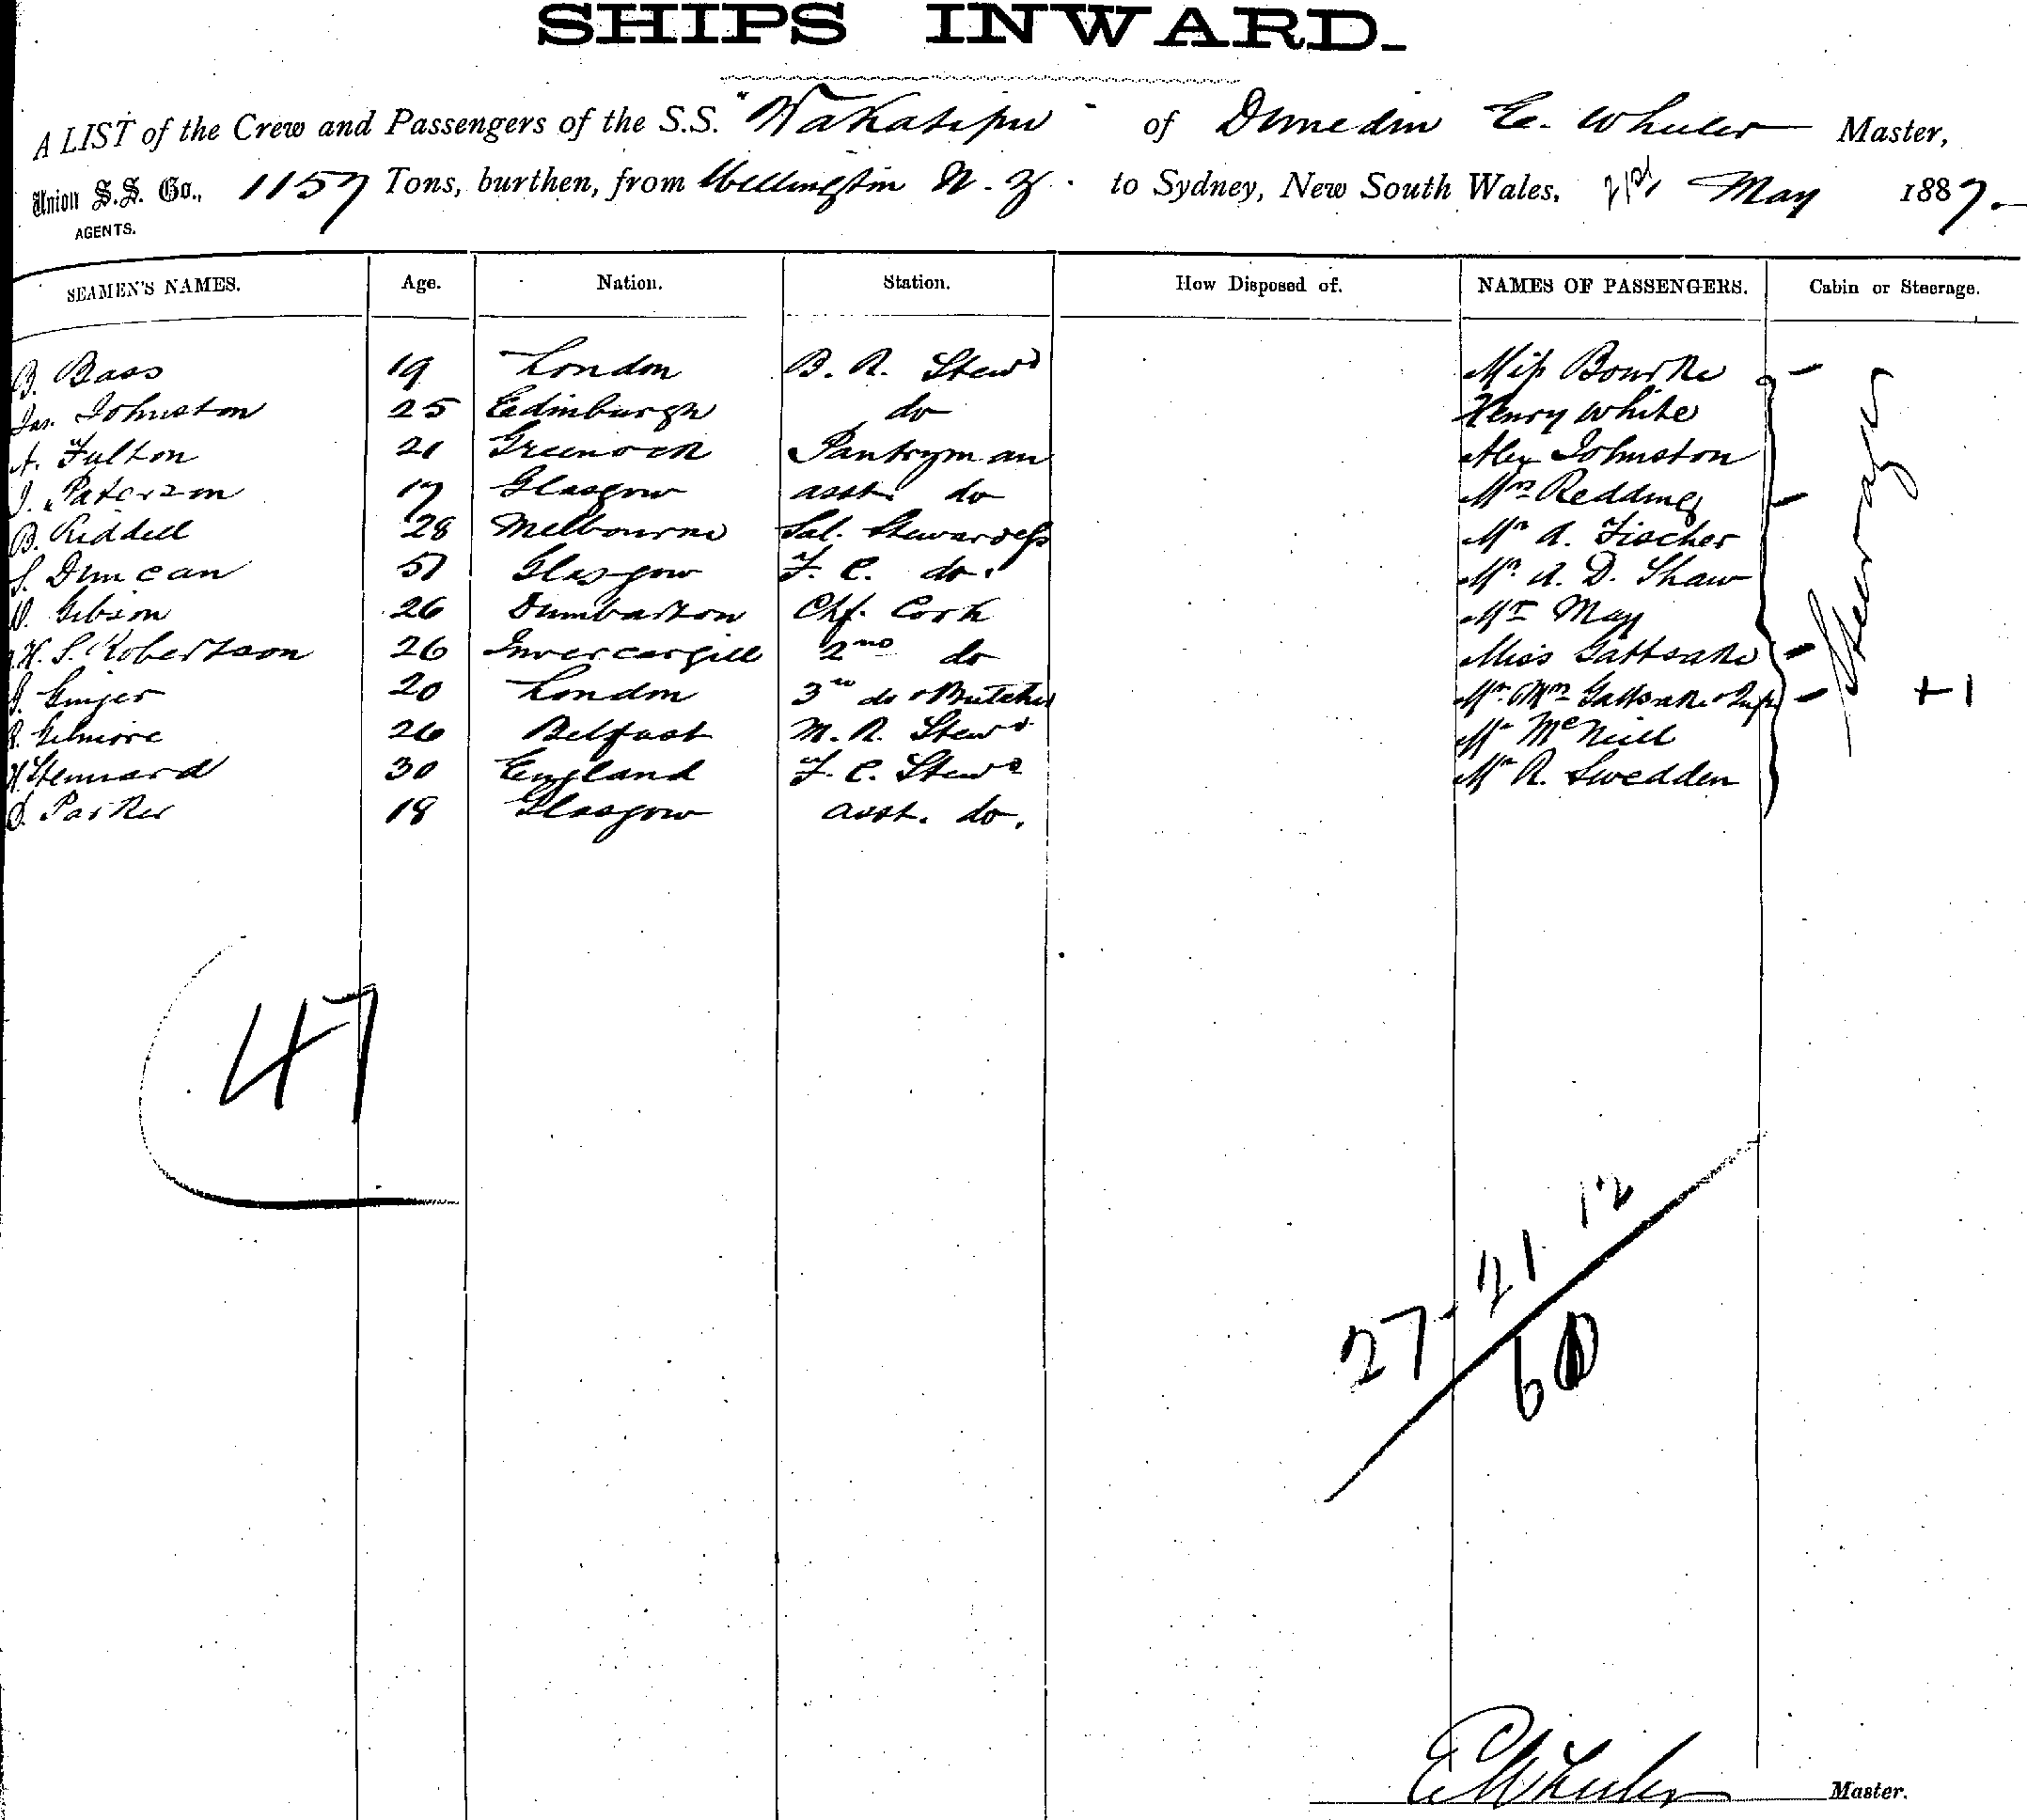 SHIPS INWARD.
A LIST of the Crew and Passengers of the S.S. "Wakatipu" of Dunedin E. Wheeler Master,
Union S.S. Co., 1157 Tons, burthen, from Wellington N.Z. to Sydney, New South Wales, 21st May 1887.
AGENTS.
SEAMEN'S NAMES. Age. Nation. Station. How Disposed of. NAMES OF PASSENGERS. Cabin or Steerage.
B. Bass 19 London B. R. Stewd Miss Bourke
Jas. Johnston 25 Edinburgh do Henry White
A. Fulton 21 Greenock Pantryman Alex Johnston
J. Paterson 17 Glasgow asst. do Mrs Redding
B. Riddell 28 Melbourne Sal. Stewardess Mr A. Fischer
S. Duncan 51 Glasgow F. C. do. Mr A. D. Shaw
Gibson 26 Dumbarton Chf. Cook Mr May
H. S. Robertson 26 Invercargill 2nd do Miss Gattsake
G. Ginger 20 London 3rd do & Butcher Mr & Mrs Gattsake & Inft
R. Gilmore 26 Belfast M. R. Stewd Mr McNeill
H. Stennard 30 England F. C. Stewd Mr R. Swedden
D. Parker 18 Glasgow asst. do.
Steerage
47
27 - 21 12
60
E Wheeler Master.